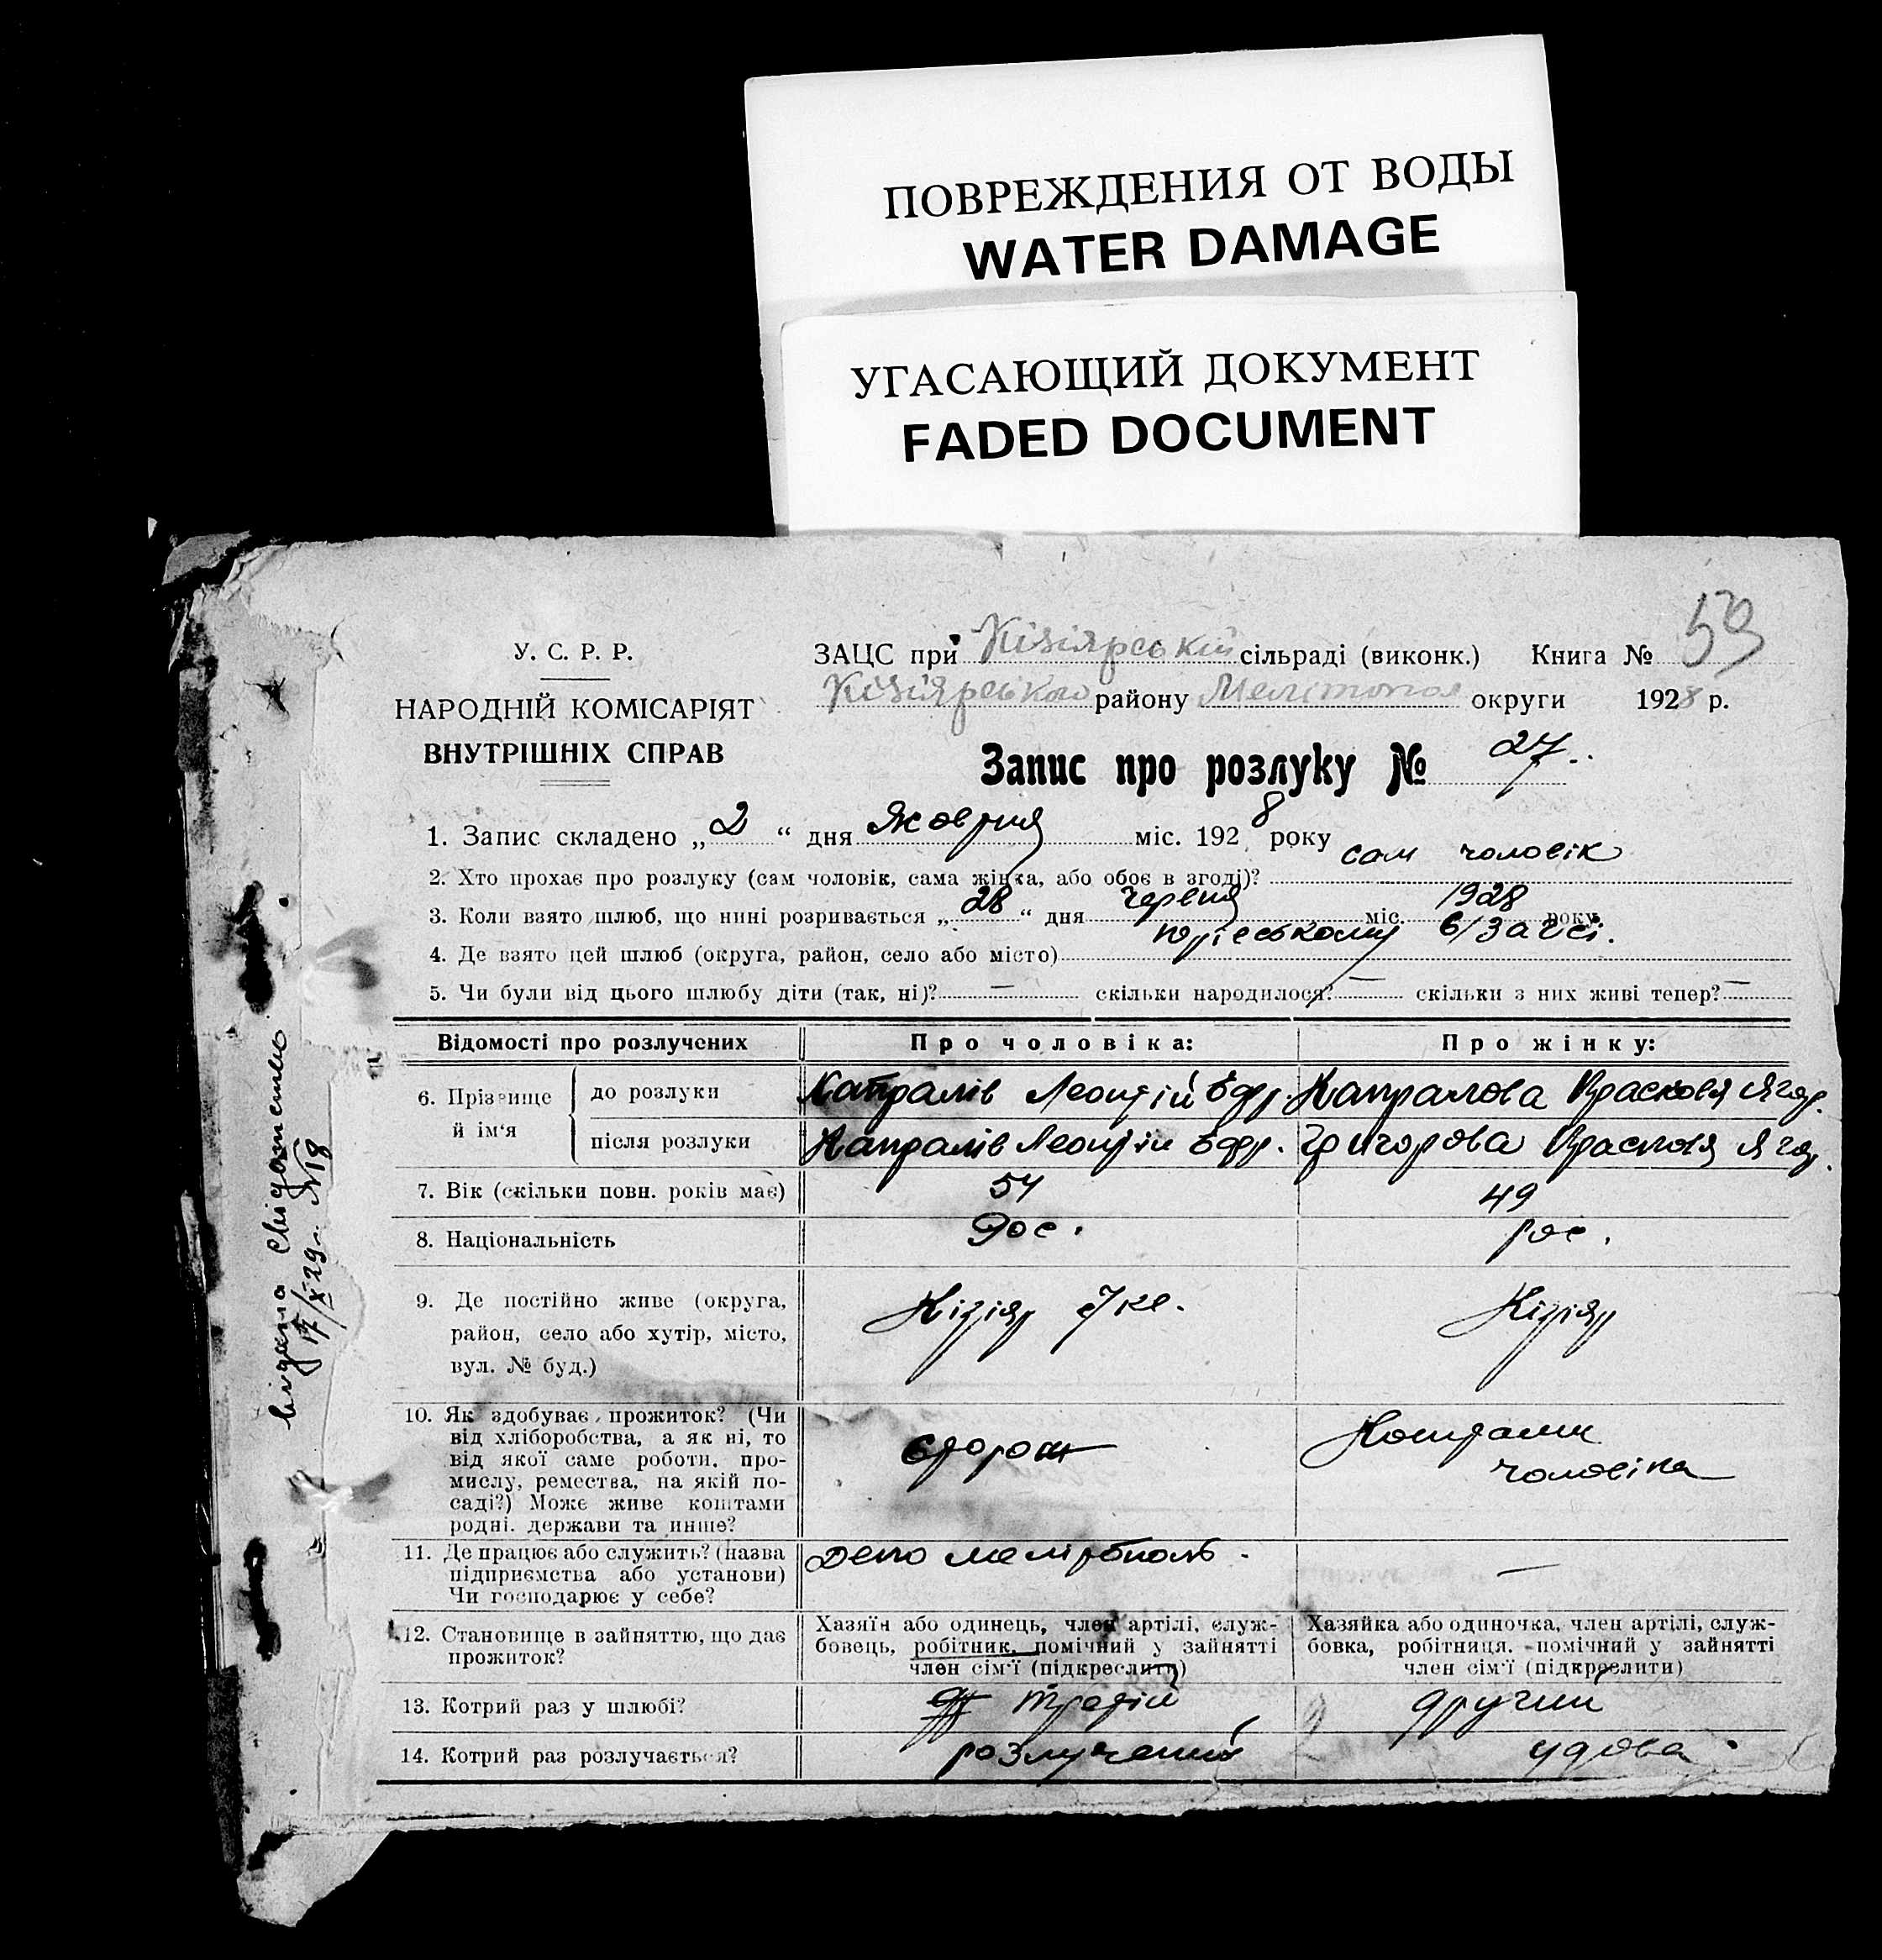 ПОВРЕЖДЕНИЯ ОТ ВОДЫ
WATER DAMAGE
УГАСАЮЩИЙ ДОКУМЕНТ
FADED DOCUMENT
59
У. С. Р. Р.
НАРОДНІЙ КОМІСАРІЯТ
ВНУТРІШНІХ СПРАВ
ЗАЦС при Кізіярській сільраді (виконк.) Книга №
Кізіярського району Мелітопол округи 1928 р.
Запис про розлуку № 27.
1. Запис складено „2“ дня Жовтня міс. 1928 року
2. Хто прохає про розлуку (сам чоловік, сама жінка, або обоє в згоді)? сам чоловік
3. Коли взято шлюб, що нині розривається „28“ дня червня міс. 1928 року
4. Де взято цей шлюб (округа, район, село або місто) в/Загсі.
5. Чи були від цього шлюбу діти (так, ні)? — скільки народилося? — скільки з них живі тепер? —
Відомості про розлучених
Про чоловіка:
Про жінку:
6. Прізвище й ім'я
до розлуки
Капралів Леонтій
Капралова Прасковя
після розлуки
Капралів Леонтій
Григорова Прасковя
7. Вік (скільки повн. років має)
54
49
8. Національність
Рос.
рос.
9. Де постійно живе (округа,
район, село або хутір, місто,
вул. № буд.)
Кізіяр
Кізіяр
10. Як здобуває прожиток? (Чи
від хліборобства, а як ні, то
від якої саме роботи, про-
мислу, ремества, на якій по-
саді?) Може живе коштами
родні, держави та инше?
сторож
Коштами
чоловіка
11. Де працює або служить? (назва
підприємства або установи)
Чи господарює у себе?
Депо Мелітополь.
—
12. Становище в зайняттю, що дає
прожиток?
Хазяїн або одинець, член артілі, служ-
бовець, робітник, помічний у зайнятті
член сім'ї (підкреслити)
Хазяйка або одиночка, член артілі, служ-
бовка, робітниця, помічний у зайнятті
член сім'ї (підкреслити)
13. Котрий раз у шлюбі?
третій
другий
14. Котрий раз розлучається?
розлучений
удова.
17/X 29 №18